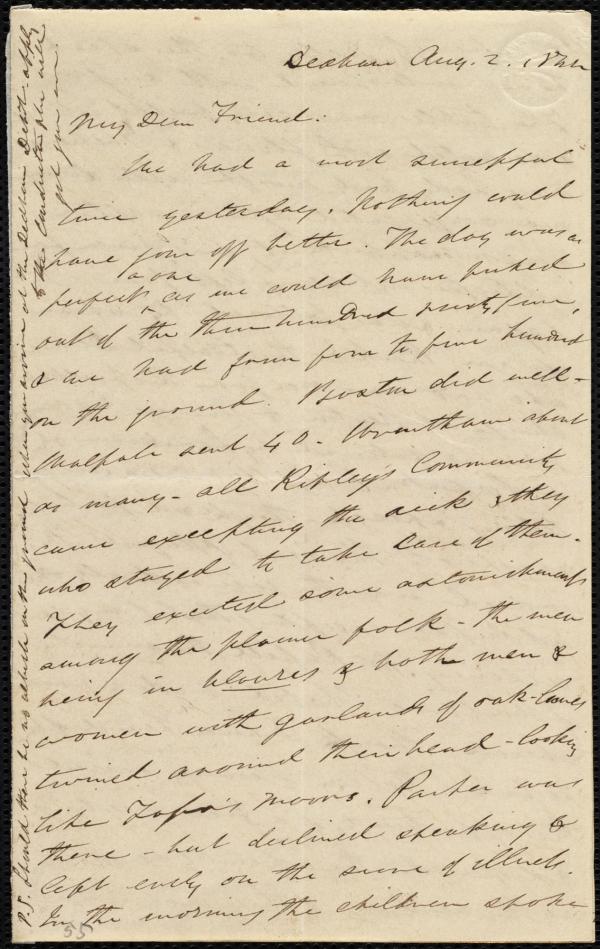 Dedham Aug. 2. 1844
My Dear Friend:
We had a most successful
time yesterday. Nothing could
have gone off better. The day was as
perfect a one as we could have picked
out of the three hundred sixty five,
& we had from four to five hundred
on the ground. Boston did well -
Walpole sent 40 - Wrentham about
as many - all Ripley's Community
came excepting the sick & they
who stayed to take care of them.
They excited some astonishment
among the plainer folk - the men
being in blouses & both men &
women with garlands of oak-leaves
twined around their head - looking
like moons. Parker was
there - but declined speaking &
left early on the score of illness.
In the morning the children spoke
55
P.S. Should there be no on the ground when you arrive at the Dedham Depôt apply
to the Conductor & he will
get you on